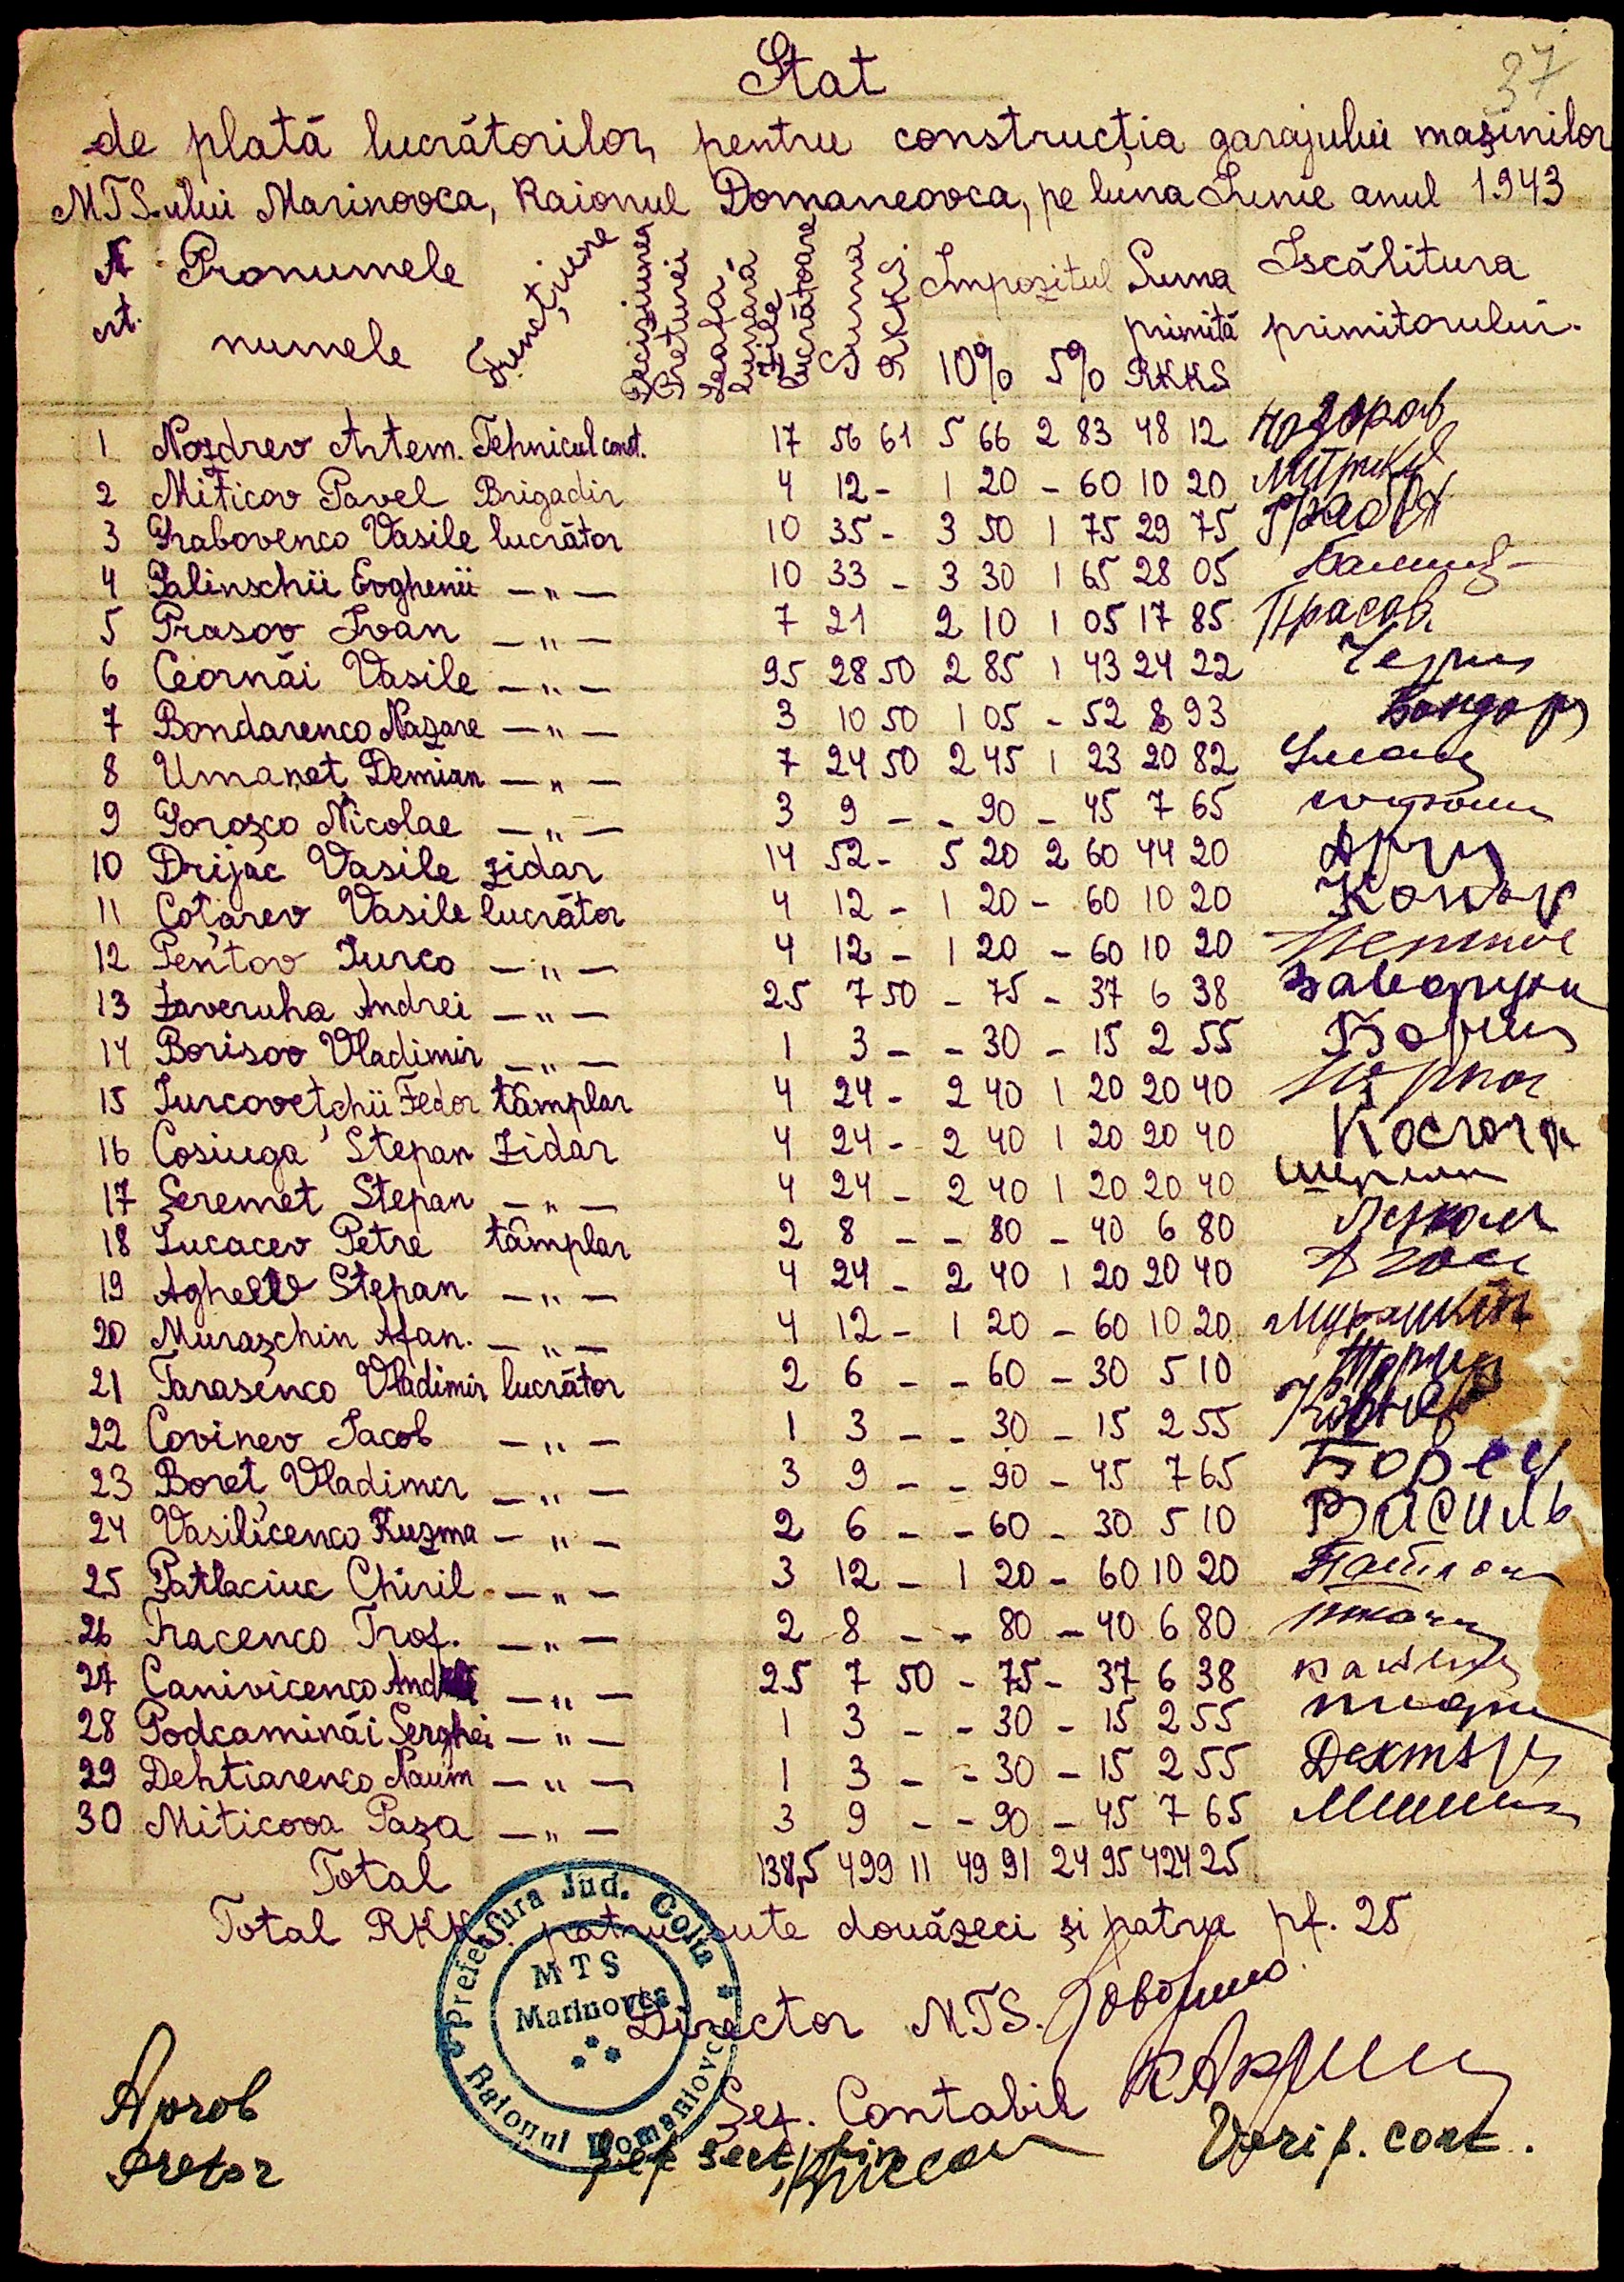 37
Stat
de plată lucrătorilor, pentru construcția garajului mașinilor
MTS.ului Marinovca, Raionul Domaneovca, pe luna Iunie anul 1943
N crt. Pronumele numele Funcțiune Deciziunea Preturei Leafa lunară Zile lucrătoare Suma RKKS. Impozitul 10% 5% Suma primită RKKS Iscălitura primitorului.
1 Nozdrev Artem. Tehnicul const. 17 56 61 5 66 2 83 48 12
2 Miticov Pavel Brigadir 4 12 - 1 20 - 60 10 20
3 Grabovenco Vasile lucrător 10 35 - 3 50 1 75 29 75
4 Balinschii Evghenii — „ — 10 33 - 3 30 1 65 28 05
5 Prasov Ivan — „ — 7 21 2 10 1 05 17 85 Прасов
6 Ceornăi Vasile — „ — 9.5 28 50 2 85 1 43 24 22
7 Bondarenco Nazare — „ — 3 10 50 1 05 - 52 8 93 Бондар
8 Umaneț Demian — „ — 7 24 50 2 45 1 23 20 82
9 Gorozco Nicolae — „ — 3 9 - - 90 - 45 7 65
10 Drijac Vasile zidar 14 52 - 5 20 2 60 44 20
11 Cotarev Vasile lucrător 4 12 - 1 20 - 60 10 20
12 Pentov Iurco — „ — 4 12 - 1 20 - 60 10 20
13 Zaveruha Andrei — „ — 2.5 7 50 - 75 - 37 6 38
14 Borisov Vladimir — „ — 1 3 - - 30 - 15 2 55
15 Iurcovețchii Fedor tâmplar 4 24 - 2 40 1 20 20 40
16 Cosiuga Stepan Zidar 4 24 - 2 40 1 20 20 40 Косюга
17 Șeremet Stepan — „ — 4 24 - 2 40 1 20 20 40
18 Lucacev Petre tâmplar 2 8 - - 80 - 40 6 80
19 Agheev Stepan — „ — 4 24 - 2 40 1 20 20 40
20 Murașchin Afan. — „ — 4 12 - 1 20 - 60 10 20 Мурашкин
21 Tarasenco Vladimir lucrător 2 6 - - 60 - 30 5 10
22 Covinev Iacob — „ — 1 3 - - 30 - 15 2 55
23 Boreț Vladimir — „ — 3 9 - - 90 - 45 7 65 Борец
24 Vasilicenco Kuzma — „ — 2 6 - - 60 - 30 5 10 Василь
25 Patlaciuc Chiril — „ — 3 12 - 1 20 - 60 10 20
26 Tracenco Trof. — „ — 2 8 - - 80 - 40 6 80
27 Canivicenco Andrei — „ — 2.5 7 50 - 75 - 37 6 38
28 Podcaminăi Serghei — „ — 1 3 - - 30 - 15 2 55
29 Dehtiarenco Naum — „ — 1 3 - - 30 - 15 2 55
30 Miticova Pașa — „ — 3 9 - - 90 - 45 7 65
Total 138,5 499 11 49 91 24 95 424 25
Total RKKS. patru sute douăzeci și patru pf. 25
Prefectura Jud. Golta
MTS
Marinovca
Raionul Domaniovca
Director MTS.
Șef. Contabil
Aprob
Pretor
Șef secț. fin
Verif. cont.